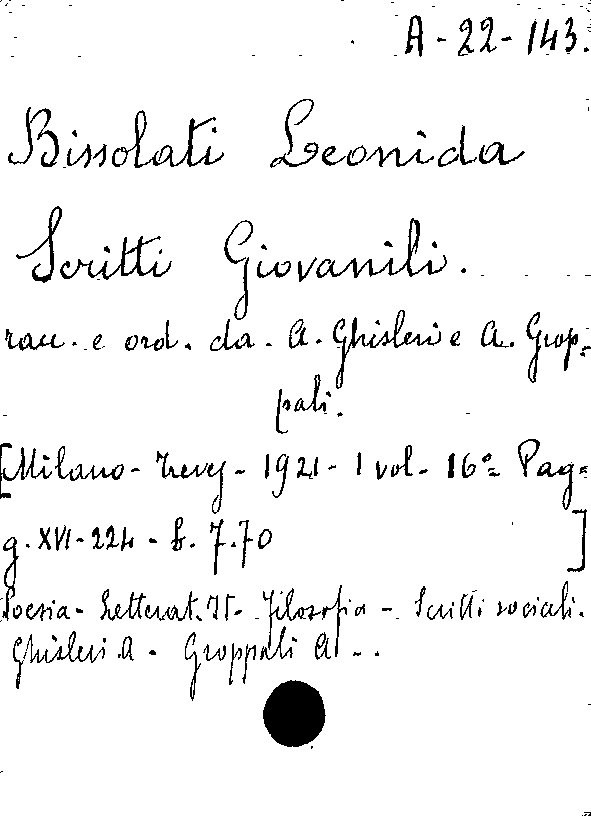 A-22-143.
Bissolati Leonida
Scritti Giovanili.
racc. e ord. da A. Ghisleri e A. Grop-
pali.
[Milano - Treves - 1921 - 1 vol. 16º- Pag-
g. XVI-224 - L. 7.70 ]
Poesia - Letterat. It - Filosofia - Scritti sociali.
Ghisleri A - Groppali A - .